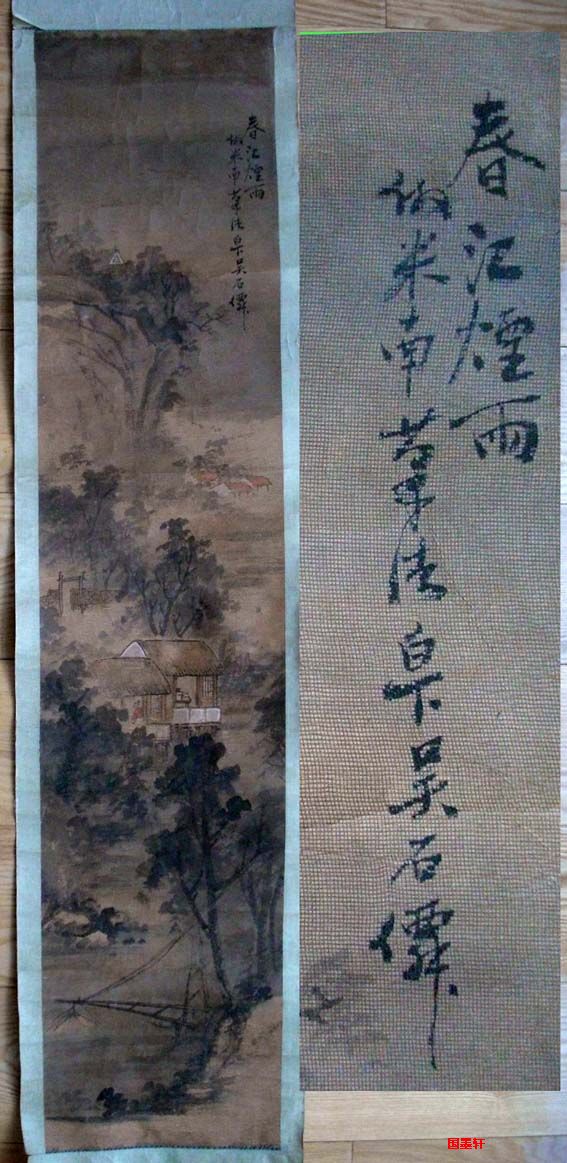 春江煙雨
倣米南筆法白下吳石僊
春江煙雨
倣米南筆法白下吳石僊
国墨轩